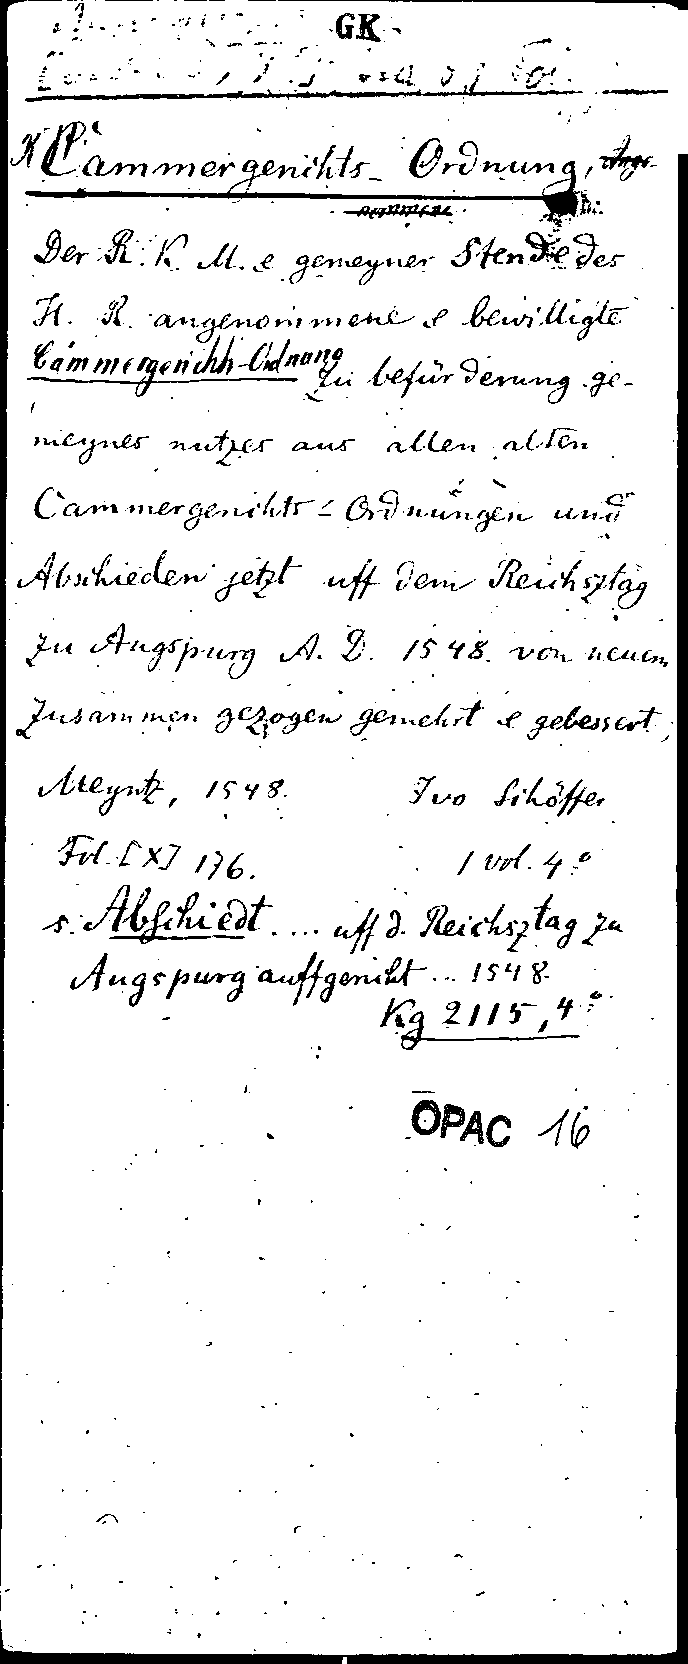 GK
Cammergerichts-Ordnung, Ange-
nommene
Der R. K. M. & gemeyner Stende des
H. R. angenommene & bewilligte
Cammergerichts-Ordnung zu befürderung ge-
meynes nutzes aus allen alten
Cammergerichts-Ordnungen und
Abschieden jetzt uff dem Reichsztag
zu Augspurg A. D. 1548. von neuem
zusammen gezogen gemehrt & gebessert,
Meyntz, 1548. Ivo Schöffer
Fol. [X] 176. 1 vol. 4°
s. Abschiedt .... uff d. Reichsztag zu
Augspurg auffgericht ... 1548.
Kg 2115, 4°
OPAC 16